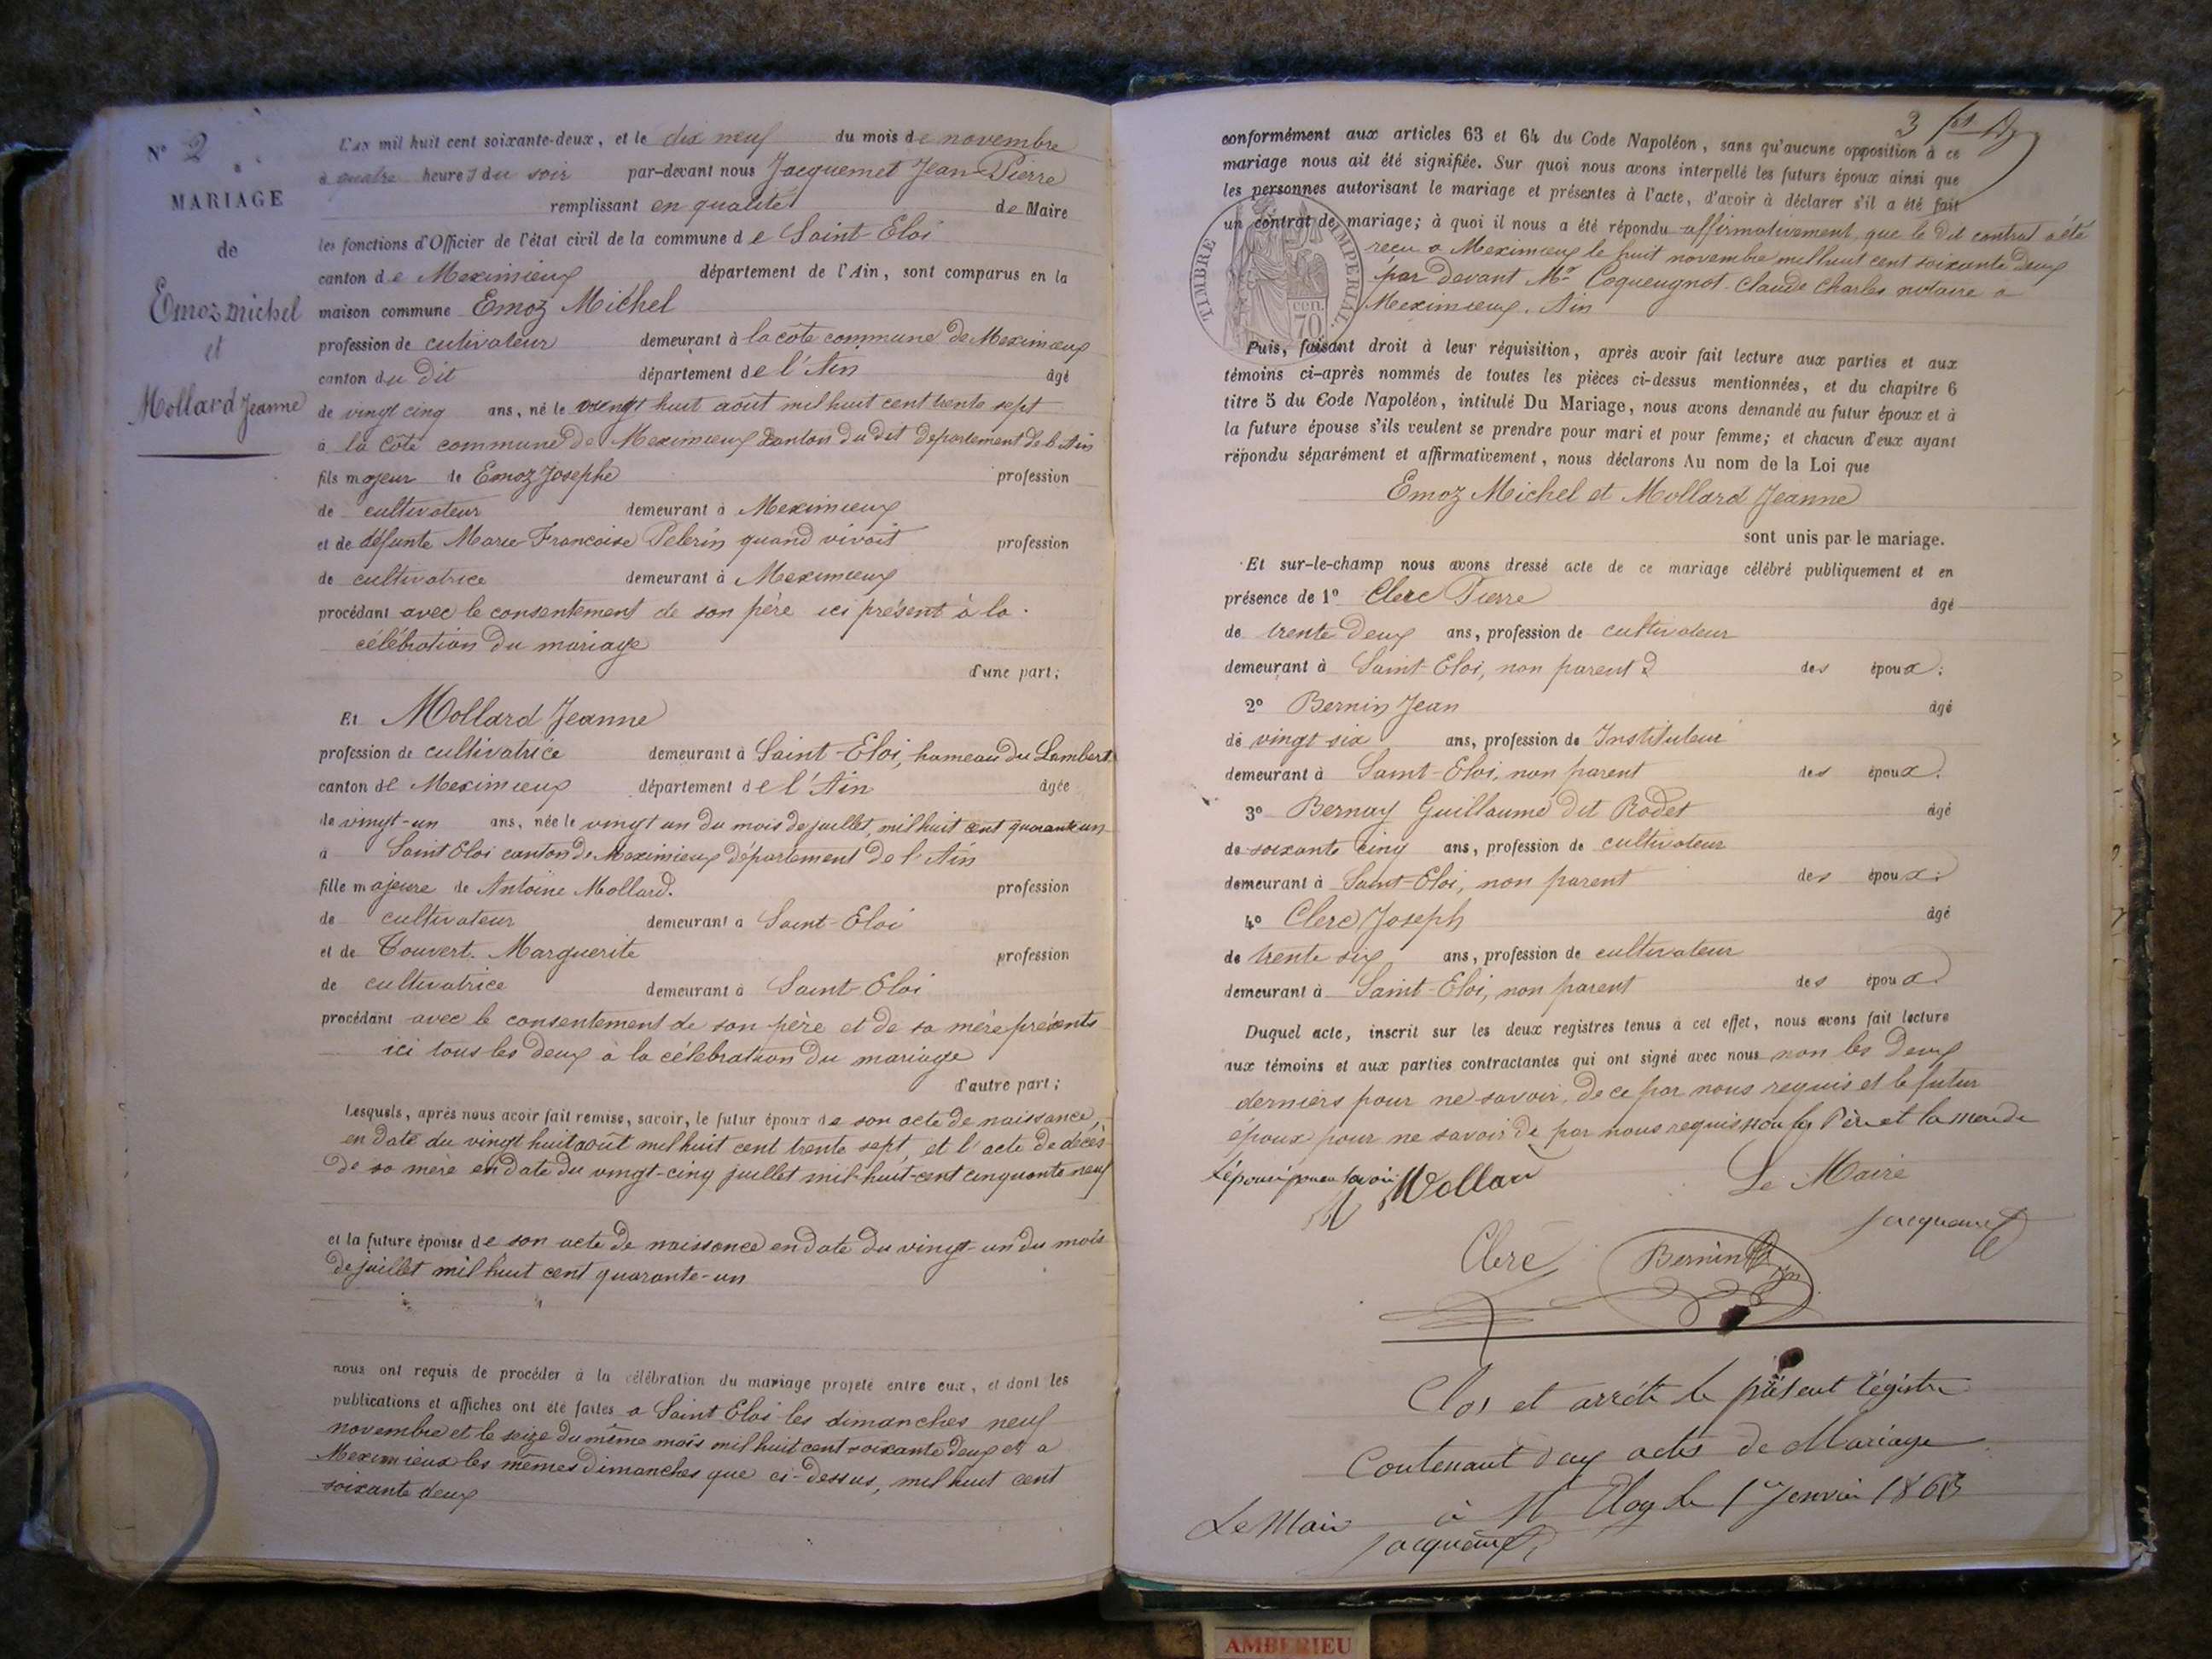 N° 2
MARIAGE
de
Emoz michel
et
Mollard Jeanne
L'AN mil huit cent soixante-deux, et le dix neuf du mois de novembre
à quatre heures du soir par-devant nous Jacquemet Jean-Pierre
remplissant en qualité de Maire
les fonctions d'Officier de l'état civil de la commune de Saint-Eloi
canton de Meximieux département de l'Ain, sont comparus en la
maison commune Emoz Michel
profession de cultivateur demeurant à la côte commune de Meximieux
canton du dit département de l'Ain âgé
de vingt cinq ans, né le vingt huit août mil huit cent trente sept
à la Côte commune de Meximieux canton du dit département de l'Ain
fils majeur de Emoz Josephe profession
de cultivateur demeurant à Meximieux
et de défunte Marie Francoise Pelerin quand vivait profession
de cultivatrice demeurant à Meximieux
procédant avec le consentement de son père ici présent à la
célébration du mariage
d'une part;
Et Mollard Jeanne
profession de cultivatrice demeurant à Saint-Eloi, hameau du Lambert
canton de Meximieux département de l'Ain âgée
de vingt-un ans, née le vingt un du mois de juillet, mil huit cent quarante un
à Saint Eloi canton de Meximieux département de l'Ain
fille majeure de Antoine Mollard. profession
de cultivateur demeurant à Saint-Eloi
et de Touvert. Marguerite profession
de cultivatrice demeurant à Saint-Eloi
procédant avec le consentement de son père et de sa mère présents
ici tous les deux à la célébration du mariage
d'autre part;
Lesquels, après nous avoir fait remise, savoir, le futur époux de son acte de naissance,
en date du vingt huit août mil huit cent trente sept, et l'acte de décès
de sa mère en date du vingt-cinq juillet mil-huit-cent cinquante neuf
et la future épouse de son acte de naissance en date du vingt-un du mois
de juillet mil huit cent quarante-un
nous ont requis de procéder à la célébration du mariage projeté entre eux, et dont les
publications et affiches ont été faites à Saint Eloi les dimanches neuf
novembre et le seize du même mois mil huit cent soixante deux et à
Meximieux les mêmes dimanches que ci-dessus, mil huit cent
soixante deux
3
conformément aux articles 63 et 64 du Code Napoléon, sans qu'aucune opposition à ce
mariage nous ait été signifiée. Sur quoi nous avons interpellé les futurs époux ainsi que
les personnes autorisant le mariage et présentes à l'acte, d'avoir à déclarer s'il a été fait
un contrat de mariage; à quoi il nous a été répondu affirmativement que le dit contrat a été
recu a Meximieux le huit novembre mil huit cent soixante deux
par devant Me Coqueugnot Claude Charles notaire a
Meximieux. Ain
TIMBRE IMPERIAL.
70 cen
Puis, faisant droit à leur réquisition, après avoir fait lecture aux parties et aux
témoins ci-après nommés de toutes les pièces ci-dessus mentionnées, et du chapitre 6
titre 5 du Code Napoléon, intitulé Du Mariage, nous avons demandé au futur époux et à
la future épouse s'ils veulent se prendre pour mari et pour femme; et chacun d'eux ayant
répondu séparément et affirmativement, nous déclarons Au nom de la Loi que
Emoz Michel et Mollard Jeanne
sont unis par le mariage.
Et sur-le-champ nous avons dressé acte de ce mariage célébré publiquement et en
présence de 1° Clerc Pierre âgé
de trente deux ans, profession de cultivateur
demeurant à Saint-Eloi, non parent des époux:
2° Bernin Jean âgé
de vingt six ans, profession de Instituteur
demeurant à Saint-Eloi, non parent des époux.
3° Bernay Guillaume dit Rodet âgé
de soixante cinq ans, profession de cultivateur
demeurant à Saint-Eloi, non parent des époux:
4° Clerc Joseph âgé
de trente six ans, profession de cultivateur
demeurant à Saint-Eloi, non parent des époux
Duquel acte, inscrit sur les deux registres tenus à cet effet, nous avons fait lecture
aux témoins et aux parties contractantes qui ont signé avec nous non les deux
derniers pour ne savoir, de ce par nous requis et le futur
époux pour ne savoir de par nous requis non le Père et la mère de
l'épouse pour ne savoir Mollar Le Maire
Jacquemet
Clerc Bernin
Clos et arrêté le présent régistre
Contenant deux actes de Mariage
à St Eloy le 1er Janvier 1863
Le Maire
Jacquemet
AMBERIEU